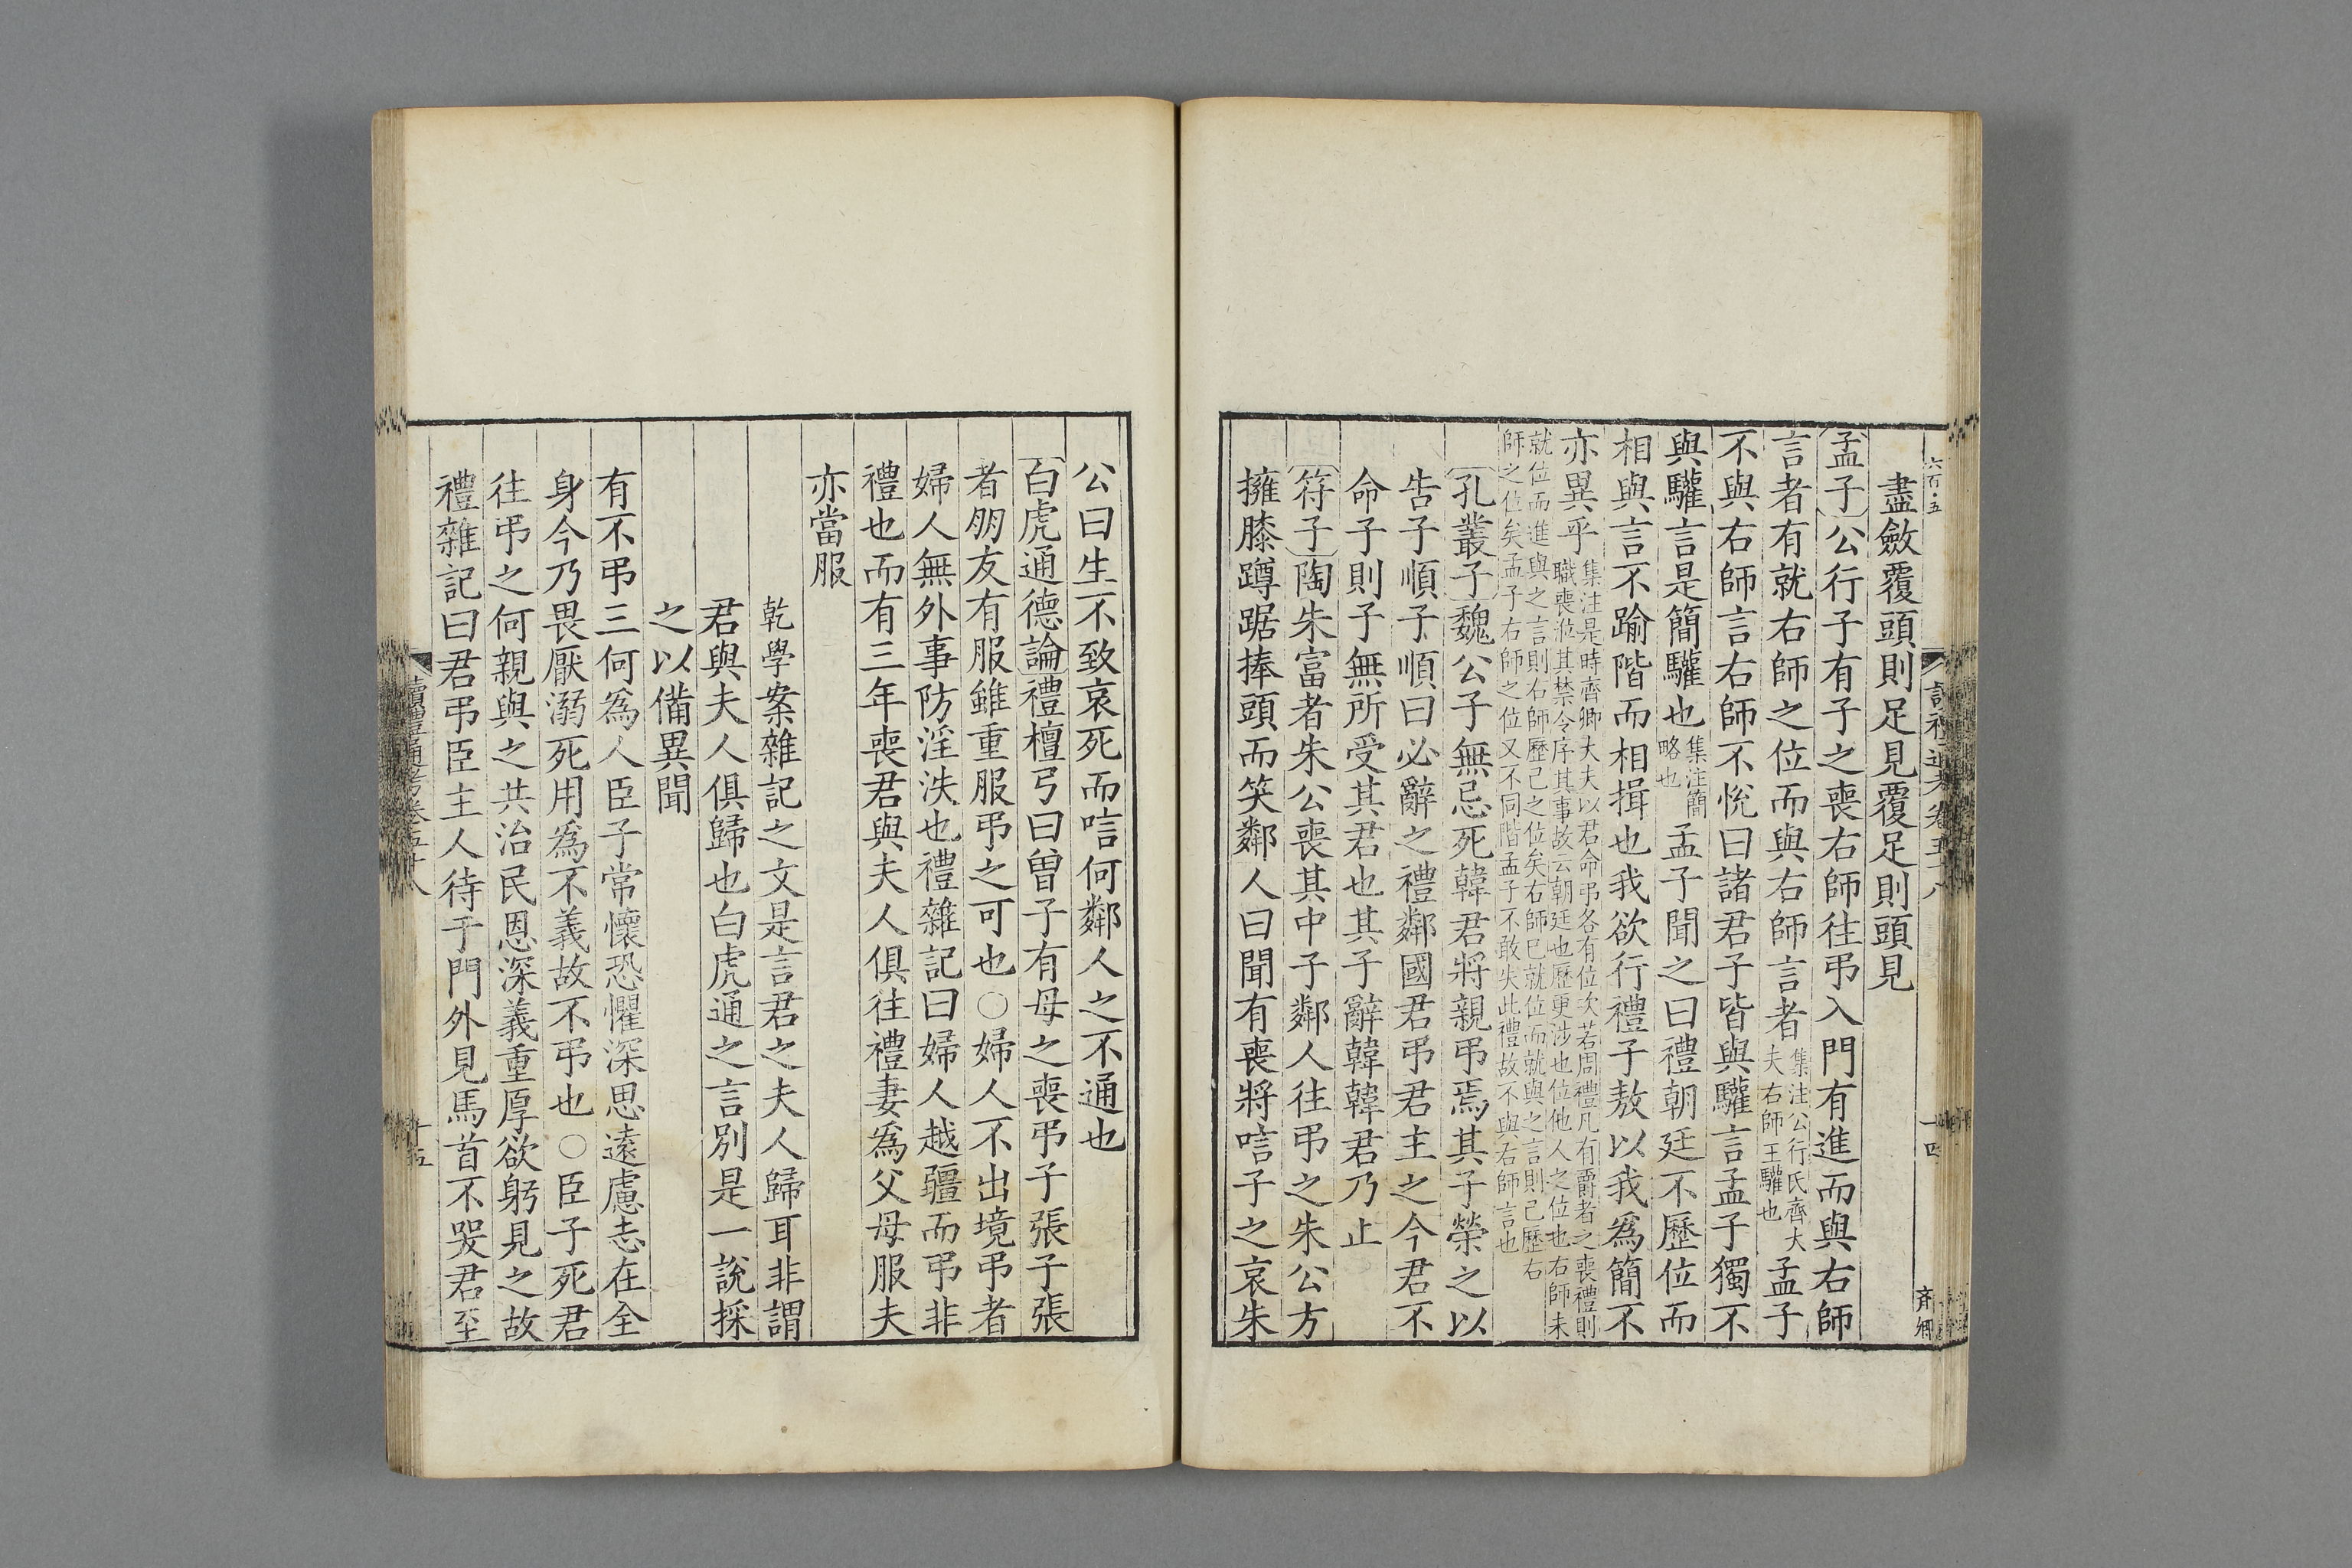 六百·五
讀禮通考卷五十八
十四
齊卿
盡斂覆頭則足見覆足則頭見
孟子公行子有子之喪右師往弔入門有進而與右師
言者有就右師之位而與右師言者集注公行氏齊大夫右師王驩也孟子
不與右師言右師不悅曰諸君子皆與驩言孟子獨不
與驩言是簡驩也集注簡略也孟子聞之曰禮朝廷不歷位而
相與言不踰階而相揖也我欲行禮子敖以我為簡不
亦異乎集注是時齊卿大夫以君命弔各有位次若周禮凡有爵者之喪禮則
職喪涖其禁令序其事故云朝廷也歷更涉也位他人之位也右師未
就位而進與之言則右師歷己之位矣右師已就位而就與之言則己歷右
師之位矣孟子右師之位又不同階孟子不敢失此禮故不與右師言也
孔叢子魏公子無忌死韓君將親弔焉其子榮之以
告子順子順曰必辭之禮鄰國君弔君主之今君不
命子則子無所受其君也其子辭韓韓君乃止
符子陶朱富者朱公喪其中子鄰人往弔之朱公方
擁膝蹲踞捧頭而笑鄰人曰聞有喪將唁子之哀朱
公曰生不致哀死而唁何鄰人之不通也
白虎通德論禮檀弓曰曾子有母之喪弔子張子張
者朋友有服雖重服弔之可也○婦人不出境弔者
婦人無外事防淫泆也禮雜記曰婦人越疆而弔非
禮也而有三年喪君與夫人俱往禮妻為父母服夫
亦當服
乾學案雜記之文是言君之夫人歸耳非謂
君與夫人俱歸也白虎通之言別是一說採
之以備異聞
有不弔三何為人臣子常懷恐懼深思遠慮志在全
身今乃畏厭溺死用為不義故不弔也○臣子死君
往弔之何親與之共治民恩深義重厚欲躬見之故
禮雜記曰君弔臣主人待于門外見馬首不哭君至
讀禮通考卷五十八
十五